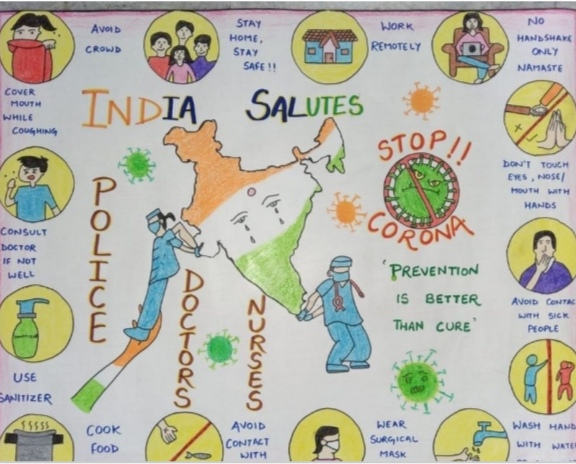 AVOID
CROWD
STAY
HOME,
STAY
SAFE!!
WORK
REMOTELY
NO
HANDSHAKE
ONLY
NAMASTE
COVER
MOUTH
WHILE
COUGHING
INDIA SALUTES
STOP!!
CORONA
DON'T TOUCH
EYES, NOSE/
MOUTH WITH
HANDS
CONSULT
DOCTOR
IF NOT
WELL
POLICE
DOCTORS
NURSES
'PREVENTION
IS BETTER
THAN CURE'
AVOID CONTAC
WITH SICK
PEOPLE
USE
SANITIZER
COOK
FOOD
AVOID
CONTACT
WITH
WEAR
SURGICAL
MASK
WASH HAND
WITH WATE